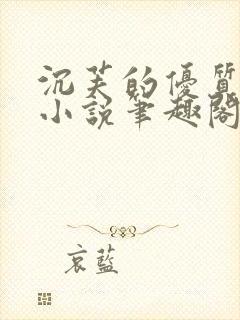 沉芙的優質
小說筆趣閣
哀藍